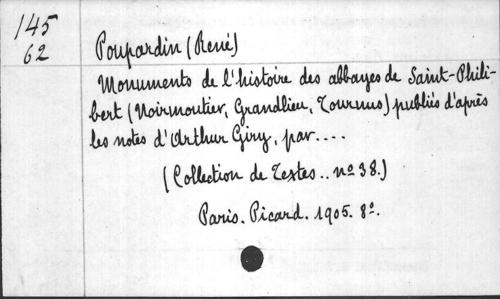 145
62
Poupardin (René)
Monuments de l'histoire des abbayes de Saint-Phili-
bert (Noirmoutier, Grandlieu, Tournus) publiés d'après
les notes d'Arthur Giry, par....
(Collection de Textes.. nº 38.)
Paris. Picard. 1905. 8º.